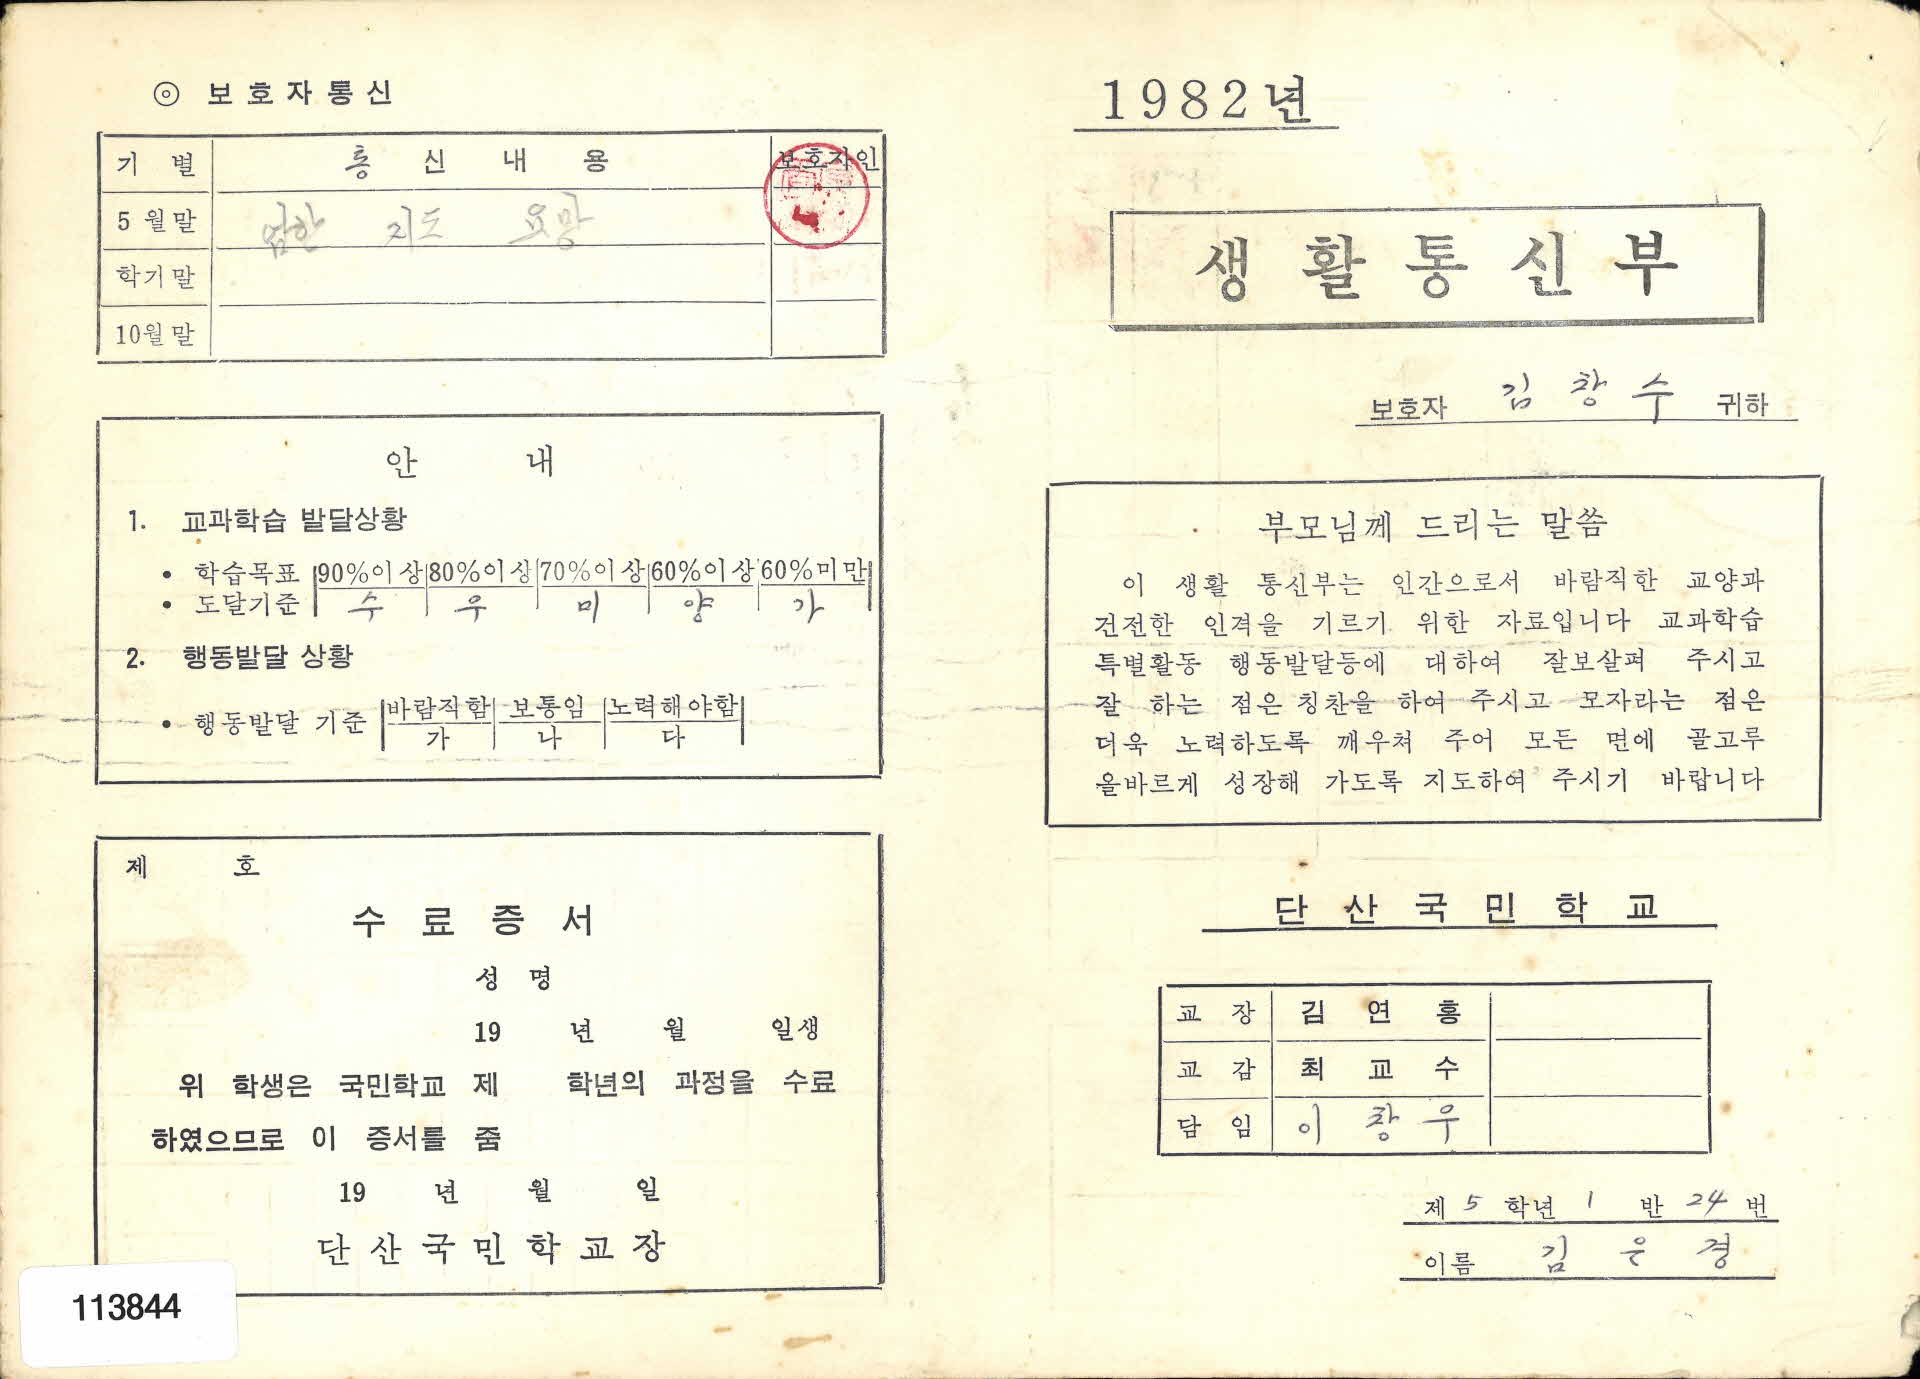 ◎ 보호자통신
기별 통신내용 보호자인
5월말 엄한 지도 요망
학기말
10월말
안 내
1. 교과학습 발달상황
• 학습목표 90%이상 80%이상 70%이상 60%이상 60%미만
• 도달기준 수 우 미 양 가
2. 행동발달 상황
• 행동발달 기준 바람직함 보통임 노력해야함
가 나 다
제 호
수료증서
성명
19 년 월 일생
위 학생은 국민학교 제 학년의 과정을 수료
하였으므로 이 증서를 줌
19 년 월 일
단산국민학교장
113844
1982년
생활통신부
보호자 김창수 귀하
부모님께 드리는 말씀
이 생활 통신부는 인간으로서 바람직한 교양과
건전한 인격을 기르기 위한 자료입니다 교과학습
특별활동 행동발달등에 대하여 잘보살펴 주시고
잘 하는 점은 칭찬을 하여 주시고 모자라는 점은
더욱 노력하도록 깨우쳐 주어 모든 면에 골고루
올바르게 성장해 가도록 지도하여 주시기 바랍니다
단산국민학교
교장 김연홍
교감 최교수
담임 이창우
제 5 학년 1 반 24 번
이름 김은경